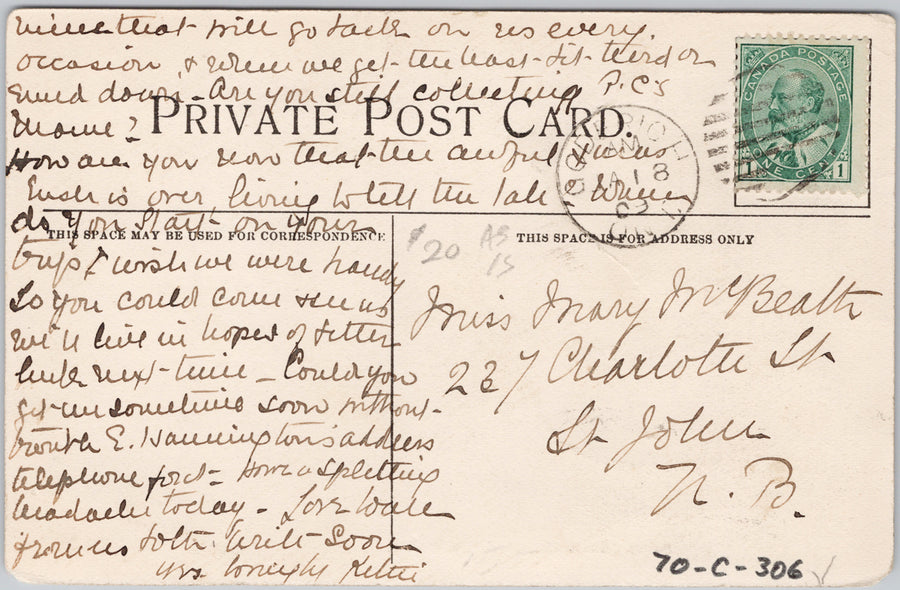 mine that will go back on us every
occasion, & when we get the least bit tired or
mind down. Are you still collecting P.C's
Mame?
PRIVATE POST CARD.
How are you now that the awful Xmas
Rush is over, living to tell the tale & When
do you start on your
THIS SPACE MAY BE USED FOR CORRESPONDENCE
trip I wish we were handy
so you could come see us
we'll live in hopes of better
luck next time – Could you
get me sometime soon without
trouble E. Hannington's address
telephone ford – have a splitting
headache today – Love to all
from us both. Write Soon
Yrs lovingly
CANADA POSTAGE
ONE CENT
1 1
AM
JA 18
09
ONT
THIS SPACE IS FOR ADDRESS ONLY
20 AS
15
Miss Mary McBeath
237 Charlotte St
St John
N. B.
70-C-306